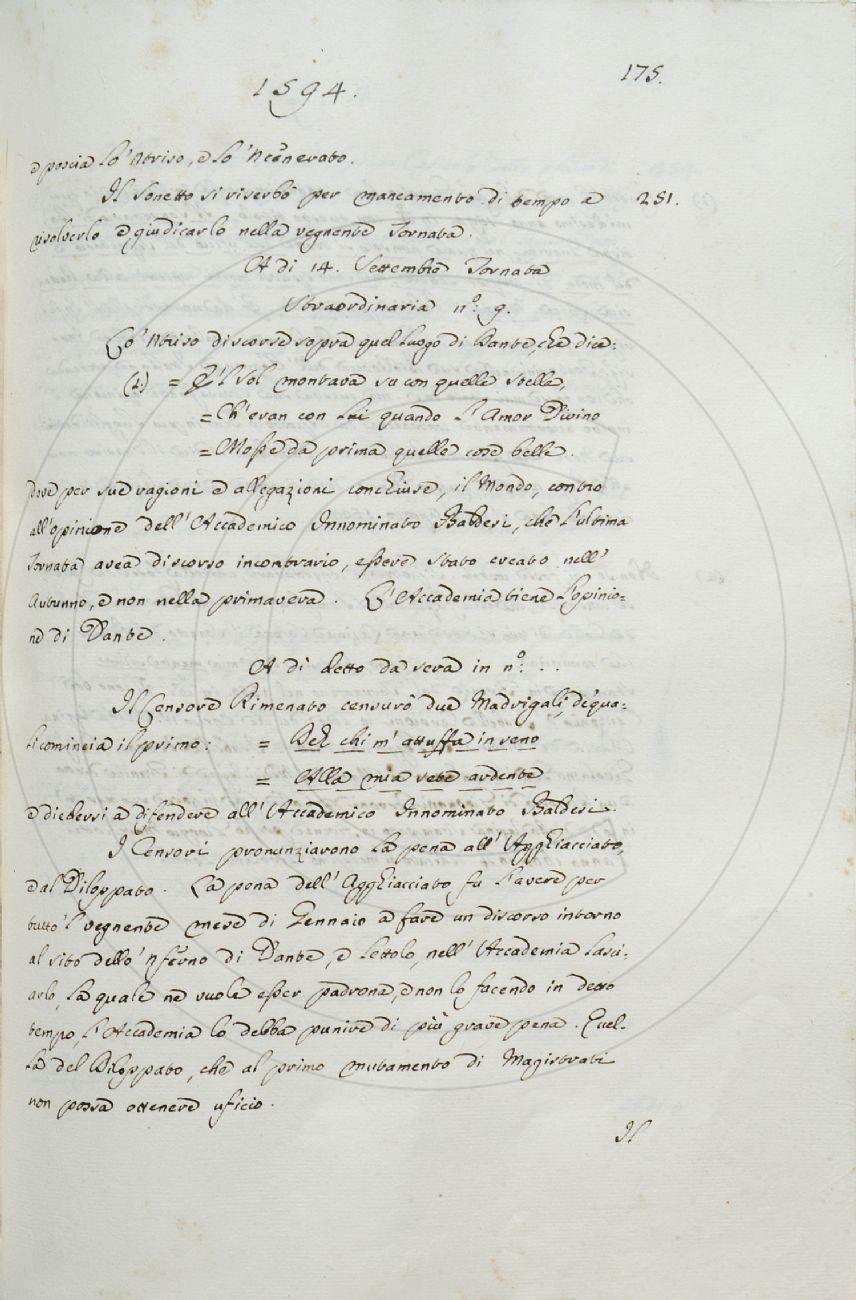 1594.
175.
e poscia lo 'Ntriso, e lo 'Ncenerato.
Il Sonetto si riserbò per mancamento di tempo a 251.
risolverlo e giudicarlo nella vegnente Tornata.
A di 14. Settembre Tornata
Straordinaria n.º 9.
Lo 'Ntriso discorse sopra quel luogo di Dante, che dice:
(1.) = E 'l Sol montava su con quelle stelle,
= Ch'eran con lui quando l'Amor Divino
= Mosse da prima quelle cose belle.
dove per sue ragioni e allegazioni conchiuse, il Mondo, contro
all'opinione dell'Accademico Innominato Baldesi, che l'ultima
Tornata avea discorso incontrario, essere stato creato nell'
Autunno, e non nella primavera. L'Accademia tiene l'opinio-
ne di Dante.
A di detto da sera in n.º ..
Il Censore Rimenato censurò due Madrigali, de' qua-
li comincia il primo: = Bel chi m'attuffa in seno
= Alla mia sete ardente
e diedersi a difendere all'Accademico Innominato Baldesi.
I Censori pronunziarono la pena all'Agghiacciato,
e al Diloppato. La pena dell'Agghiacciato, fu l'avere per
tutto 'l vegnente mese di Gennaio a fare un discorso intorno
al sito dello 'nferno di Dante, e lettolo, nell'Accademia lasci-
arlo, la quale ne vuole esser padrona, e non lo facendo in detto
tempo, l'Accademia lo debba punire di più grave pena. Quel-
la del Diloppato, che al primo mutamento di Magistrati
non possa ottenere uficio.
Il